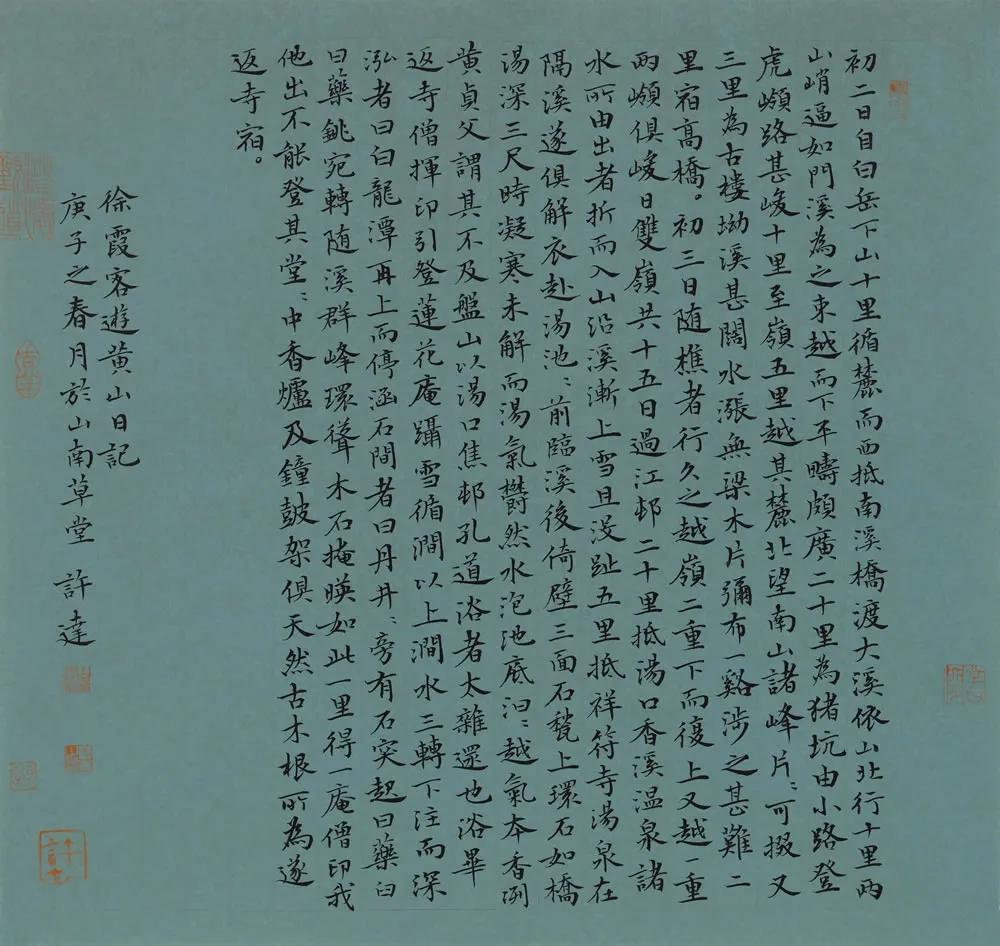 初二日自白岳下山十里循麓而西抵南溪橋渡大溪依山北行十里兩
山峭逼如門溪為之束越而下平疇頗廣二十里為猪坑由小路登
虎嶺路甚峻十里至嶺五里越其麓北望南山諸峰片〻可掇又
三里為古樓坳溪甚闊水漲無梁木片彌布一谿涉之甚難二
里宿高橋。初三日随樵者行久之越嶺二重下而復上又越一重
兩嶺俱峻曰雙嶺共十五日過江邨二十里抵湯口香溪温泉諸
水所由出者折而入山沿溪漸上雪且没趾五里抵祥符寺湯泉在
隔溪遂俱解衣赴湯池〻前臨溪後倚壁三面石甃上環石如橋
湯深三尺時凝寒未解而湯氣欝然水泡池底汩〻越氣本香洌
黄貞父謂其不及盤山以湯口焦邨孔道浴者太雜遝也浴畢
返寺僧揮印引登蓮花庵躡雪循澗以上澗水三轉下注而深
泓者曰白龍潭再上而停涵石間者曰丹井〻旁有石突起曰藥臼
曰藥銚宛轉随溪群峰環聳木石掩暎如此一里得一庵僧印我
他出不能登其堂〻中香爐及鐘鼓架俱天然古木根所為遂
返寺宿。
徐霞客遊黄山日記
庚子之春月於山南草堂 許達